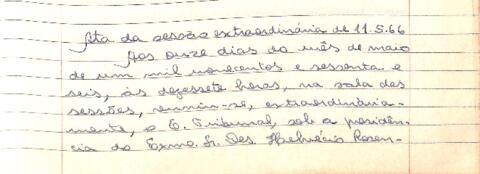 Ata da sessão extraordinária de 11.5.66
Aos onze dias do mês de maio
de um mil novecentos e sessenta e
seis, às dezessete horas, na sala das
sessões, reuniu-se, extraordinária-
mente, o E. Tribunal, sob a presidên-
cia do Exmo. Sr. Des. Helvécio Rosen-